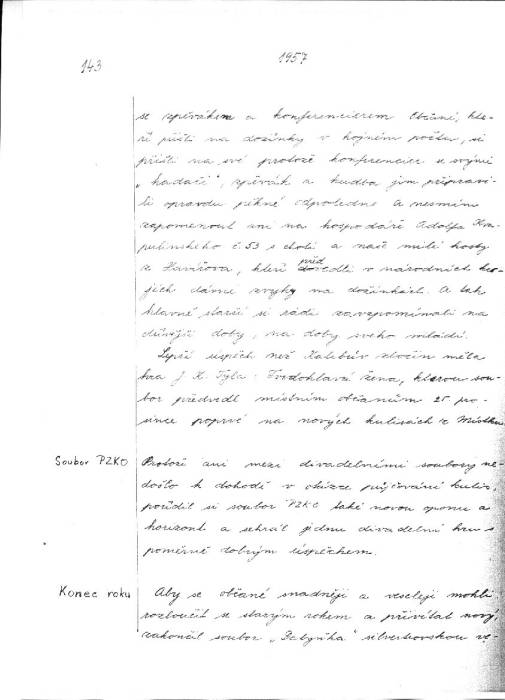 143
1957
se zpěvákem a konferencierem Občané, kte-
ří přišli na dožínky v hojném počtu, si
přišli na své protože konferencier s svými
„hadači", zpěvák a hudba jim připravi-
li opravdu pěkné odpoledne A nesmím
zapomenout ani na hospodáře Adolfa Kra-
pulinského č. 53 s chotí a naše milé hosty
z Havířova, kteří před vedli v národních kro-
jích dávné zvyky na dožínkách. A tak
hlavně starší si rádi zavzpomínali na
dřívější doby, na doby svého mládí.
Lepší úspěch než Kalebův zločin měla
hra J. K. Tyla: Tvrdohlavá žena, kterou sou-
bor předvedl místním občanům 25. pro-
since poprvé na nových kulisách z Místku
Soubor PZKO
Protože ani mezi divadelními soubory ne-
došlo k dohodě v otázce půjčování kulis,
pořídil si soubor PZKO také novou oponu a
horizont a sehrál jednu divadelní hru s
poměrně dobrým úspěchem.
Konec roku
Aby se občané snadněji a veseleji mohli
rozloučit se starým rokem a přivítat nový
zakončil soubor silvestrovskou ve-